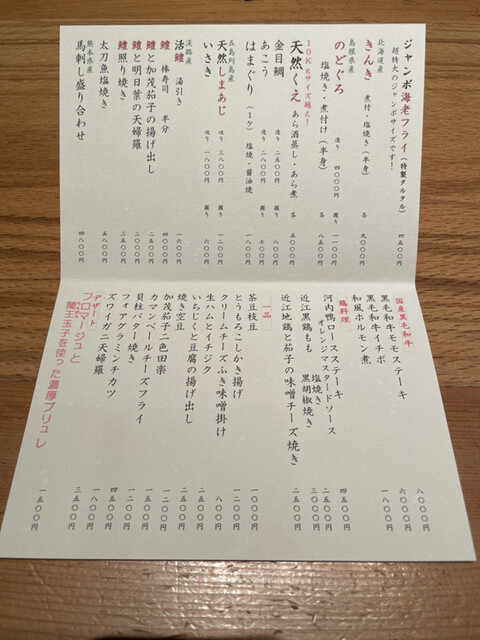 ジャンボ海老フライ（特製タルタル） 四五〇〇円
超特大のジャンボサイズです！
北海道産
きんき 煮付・塩焼き（半身） 各 九〇〇〇円
島根県産
のどぐろ 造り 四〇〇〇円 握り 二一〇〇円
塩焼き・煮付け（半身） 各 八五〇〇円
10Kgサイズ越え！
天然くえ あら酒蒸し・あら煮 各 五〇〇〇円
金目鯛 造り 二五〇〇円 握り 八〇〇円
あこう 造り 二八〇〇円 握り 七〇〇円
はまぐり（1ヶ）塩焼・醤油焼 一八〇〇円
五島列島産
天然しまあじ 造り 三八〇〇円 握り 一二〇〇円
いさき 造り 一八〇〇円 握り 六〇〇円
淡路産
活鱧 湯引き 一六〇〇円
鱧 棒寿司 半分 四〇〇〇円
鱧と加茂茄子の揚げ出し 二五〇〇円
鱧と明日葉の天婦羅 三五〇〇円
鱧照り焼き 三五〇〇円
太刀魚塩焼き 五八〇〇円
熊本県産
馬刺し盛り合わせ 四八〇〇円
国産黒毛和牛
黒毛和牛モモステーキ 八〇〇〇円
黒毛和牛イチボ 六〇〇〇円
和風ホルモン煮 一八〇〇円
鶏料理
河内鴨ロースステーキ 四五〇〇円
オレンジマスタードソース
近江黒鶏もも 塩焼き 三〇〇〇円
黒胡椒焼き
近江地鶏と茄子の味噌チーズ焼き 二五〇〇円
一品
茶豆枝豆 一〇〇〇円
とうもろこしかき揚げ 一二〇〇円
クリームチーズふき味噌掛け 八〇〇円
生ハムとイチジク 二五〇〇円
いちじくと豆腐の揚げ出し 二五〇〇円
焼き空豆 一二〇〇円
加茂茄子二色田楽 二〇〇〇円
カマンベールチーズフライ 一五〇〇円
貝柱バター焼き 一二〇〇円
フォアグラミンチカツ 四五〇〇円
ズワイガニ天婦羅 一八〇〇円
三五〇〇円
デザート
フロマージュと
蘭王玉子を使った濃厚ブリュレ 一五〇〇円